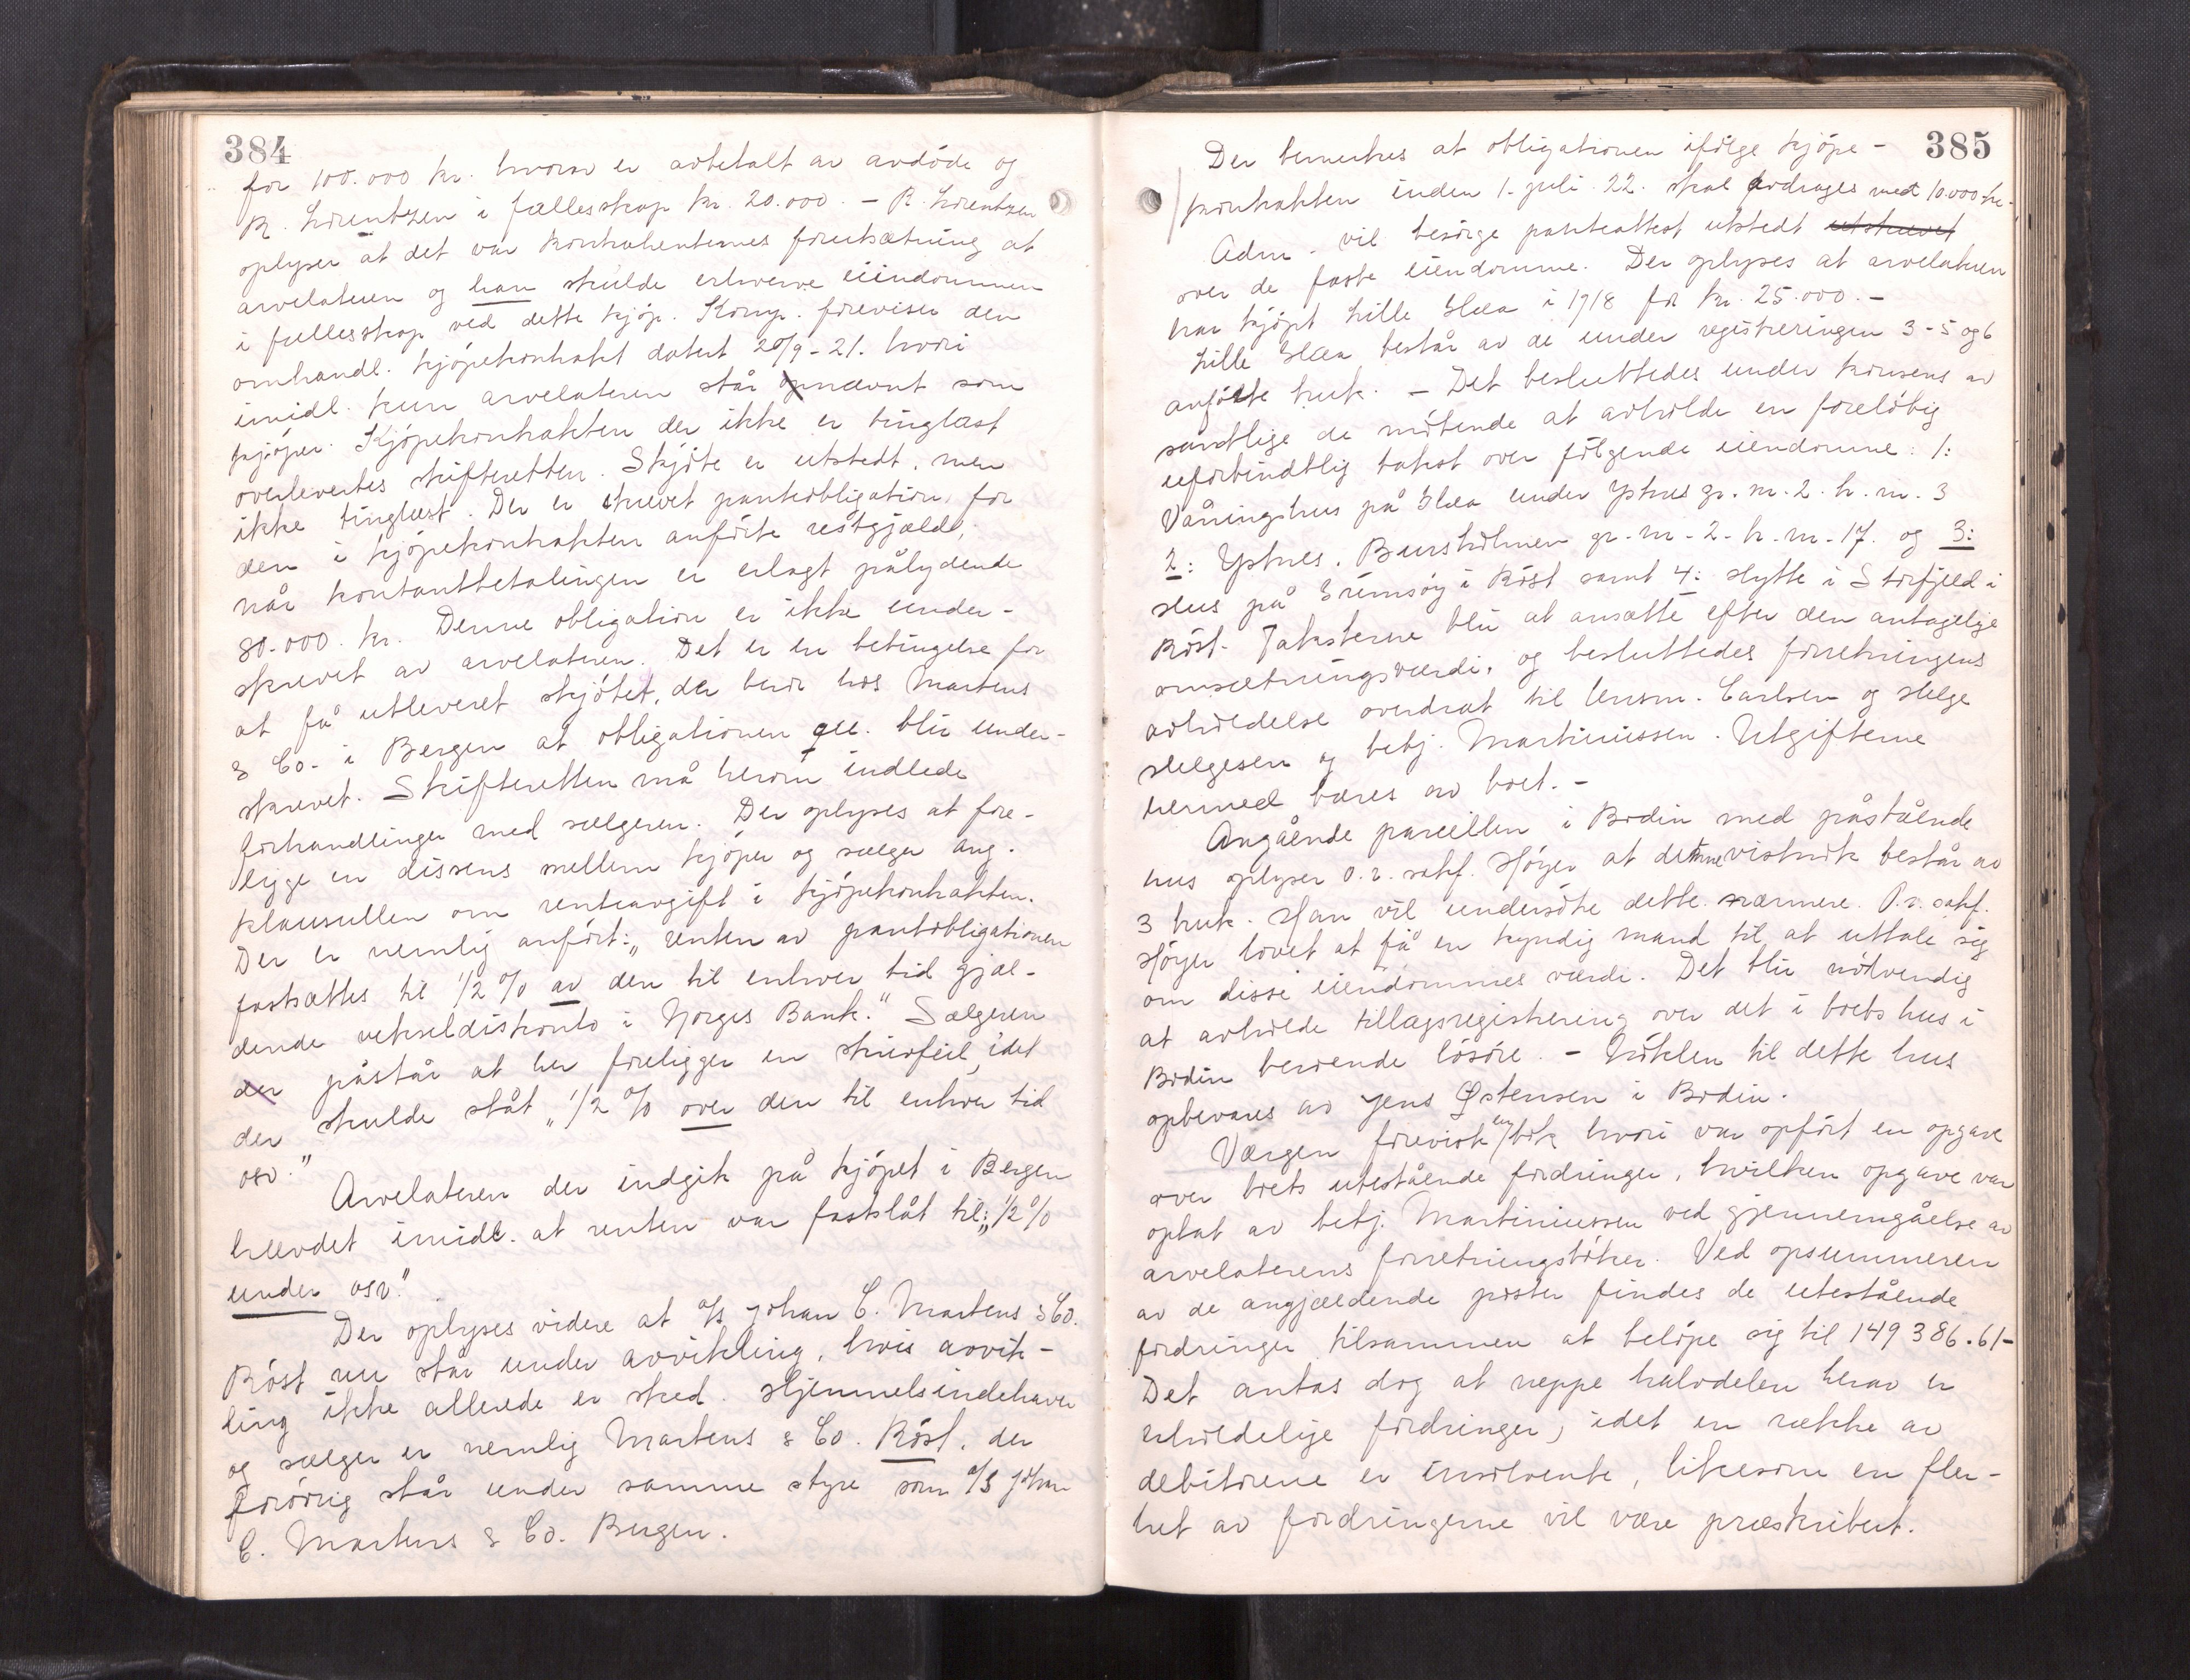 384
for 100.000 kr. hvorav er avbetalt av avdøde og
R. Lorentzen i fællesskap kr. 20.000. - R. Lorentzen
oplyser at det var kontrahenternes forutsætning at
arvelateren og han skulde erhverve eiendommen
i fællesskap ved dette kjøp. Komp. foreviser den
omhandl. kjøpekontrakt datert 20/9-21. hvori
imidl. kun arvelateren står opnævnt som
kjøper. Kjøpekontrakten der ikke er tinglæst
overlevertes skifteretten. Skjøte er utstedt, men
ikke tinglæst. Der er skrevet pantobligation for
den i kjøpekontrakten anførte restgjæld,
når kontantbetalingen er erlagt pålydende
80.000. kr. Denne obligation er ikke under-
skrevet av arvelateren. Det er en betingelse for
at få utleveret skjøtet, der beror hos Martens
& Co. i Bergen at obligationen gl. blir under-
skrevet. Skifteretten må herom indlede
forhandlinger med sælgeren. Der oplyses at fore-
ligge en dissens mellem kjøper og sælger ang.
klausullen om renteavgift i kjøpekontrakten.
Der er nemlig anført: „renten av pantobligationen
fastsættes til 1/2 % av den til enhver tid gjæl-
dende vekseldiskonto i Norges Bank." Sælgeren
der påstår at her foreligger en skrivfeil, idet
der skulde ståt „1/2 % over den til enhver tid
osv."
Arvelateren der indgik på kjøpet i Bergen
hævdet imidl. at renten var fastslåt til: „1/2 %
under osv."
Der oplyses videre at a/s Johan C. Martens & Co.
Røst nu står under avvikling, hvis avvik-
ling ikke allerede er sked. Hjemmelsindehaver
og sælger er nemlig Martens & Co. Røst, der
forøvrig står under samme styre som a/s Johan
C. Martens & Co. Bergen.
385
Der bemerkes at obligationen ifølge kjøpe-
kontrakten inden 1. juli 22. skal avdrages med 10.000 kr.
Adm. vil besørge panteattest utstedt utskrevet
over de faste eiendomme. Der oplyses at arvelateren
har kjøpt Lille Glea i 1918 for kr. 25.000.-
Lille Glea består av de under registreringen 3-5 og 6
anførte bruk. - Det besluttedes under konsens av
samtlige de møtende at avholde en foreløbig
uforbindtlig takst over følgende eiendomme: 1:
Våningshus på Glea under Ystnes gr. nr. 2. br. nr. 3
2: Ystnes, Bursholmen gr. nr. 2. br. nr. 17. og 3:
Hus på Grimsøy i Røst samt 4: Hytte i Storfjeld i
Røst. Taksterne blir at ansætte efter den antagelige
omsætningsværdi, og besluttedes forretningens
avholdelse overdrat til lensm. Carlsen og Helge
Helgesen og betj. Martiniussen. Utgifterne
hermed bæres av boet.-
Angående parcellen i Bodin med påstående
hus oplyser o.r. sakf. Høyer at denne vistnok består av
3 bruk. Han vil undersøke dette nærmere. O.r. sakf.
Høyer lovet at få en kyndig mand til at uttale sig
om disse eiendommes værdi. Det blir nødvendig
at avholde tillægsregistrering over det i boets hus i
Bodin beroende løsøre. - Nøklen til dette hus
opbevares av Jens Østensen i Bodin.
Værgen forevist en bok hvori var opført en opgave
over boets utestående fordringer, hvilken opgave var
optat av betj. Martiniussen ved gjennemgåelse av
arvelaterens forretningsbøker. Ved opsummeren
av de angjældende poster findes de utestående
fordringer tilsammen at beløpe sig til 149386.61-
Det antas dog at neppe halvdelen herav er
erholdelige fordringer, idet en række av
debitorene er insolvente, likesom en fler-
het av fordringerne vil være præskribert.